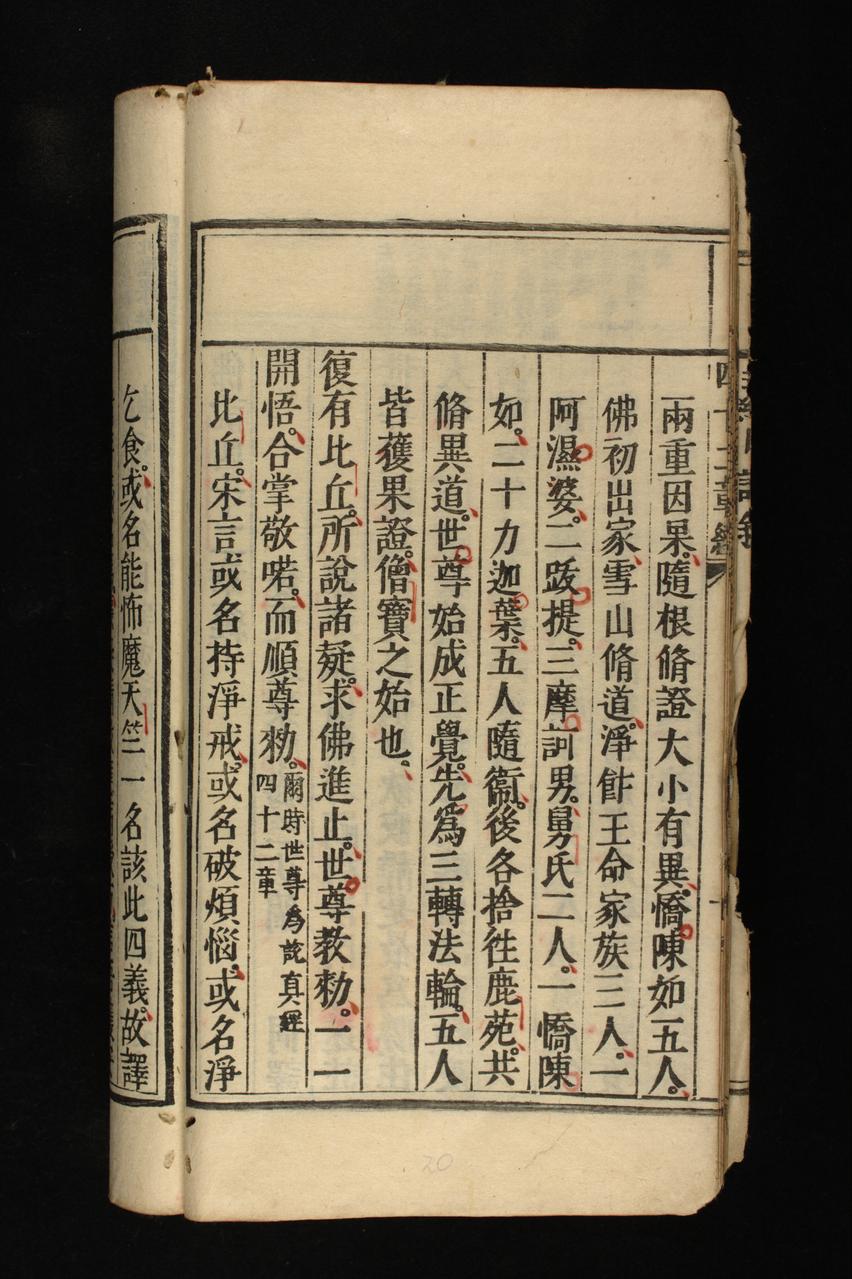 四十二章經
兩重因果。隨根脩證大小有異。憍陳如五人。
佛初出家。雪山脩道。淨飰王命家族三人。一
阿濕婆。二跋提。三摩訶男。舅氏二人。一憍陳
如。二十力迦葉。五人隨衞。後各捨徃鹿苑。共
脩異道。世尊始成正覺。先爲三轉法輪。五人
皆獲果證。僧寶之始也。
復有比丘。所說諸疑。求佛進止。世尊教勑。一一
開悟。合掌敬喏。而順尊勑。爾時世尊爲說真經
四十二章
比丘。宋言或名持淨戒。或名破煩惱。或名淨
乞食。或名能怖魔。天竺一名該此四義。故譯
20